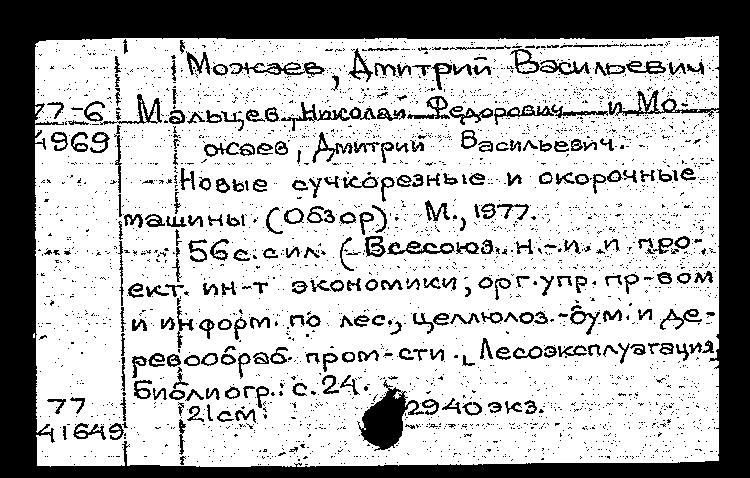 Можаев, Дмитрий Васильевич
77-6 Мальцев, Николай Федорович и Мо-
4969 жаев, Дмитрий Васильевич.
Новые сучкорезные и окорочные
машины. (Обзор). М., 1977.
56 с. с ил. (Всесоюз. н.-и. и про-
ект. ин-т экономики, орг. упр. пр-вом
и информ. по лес., целлюлоз.-бум. и де-
ревообраб. пром-сти. Лесоэксплуатация)
Библиогр.: с. 24.
77 21 см. 2940 экз.
41649